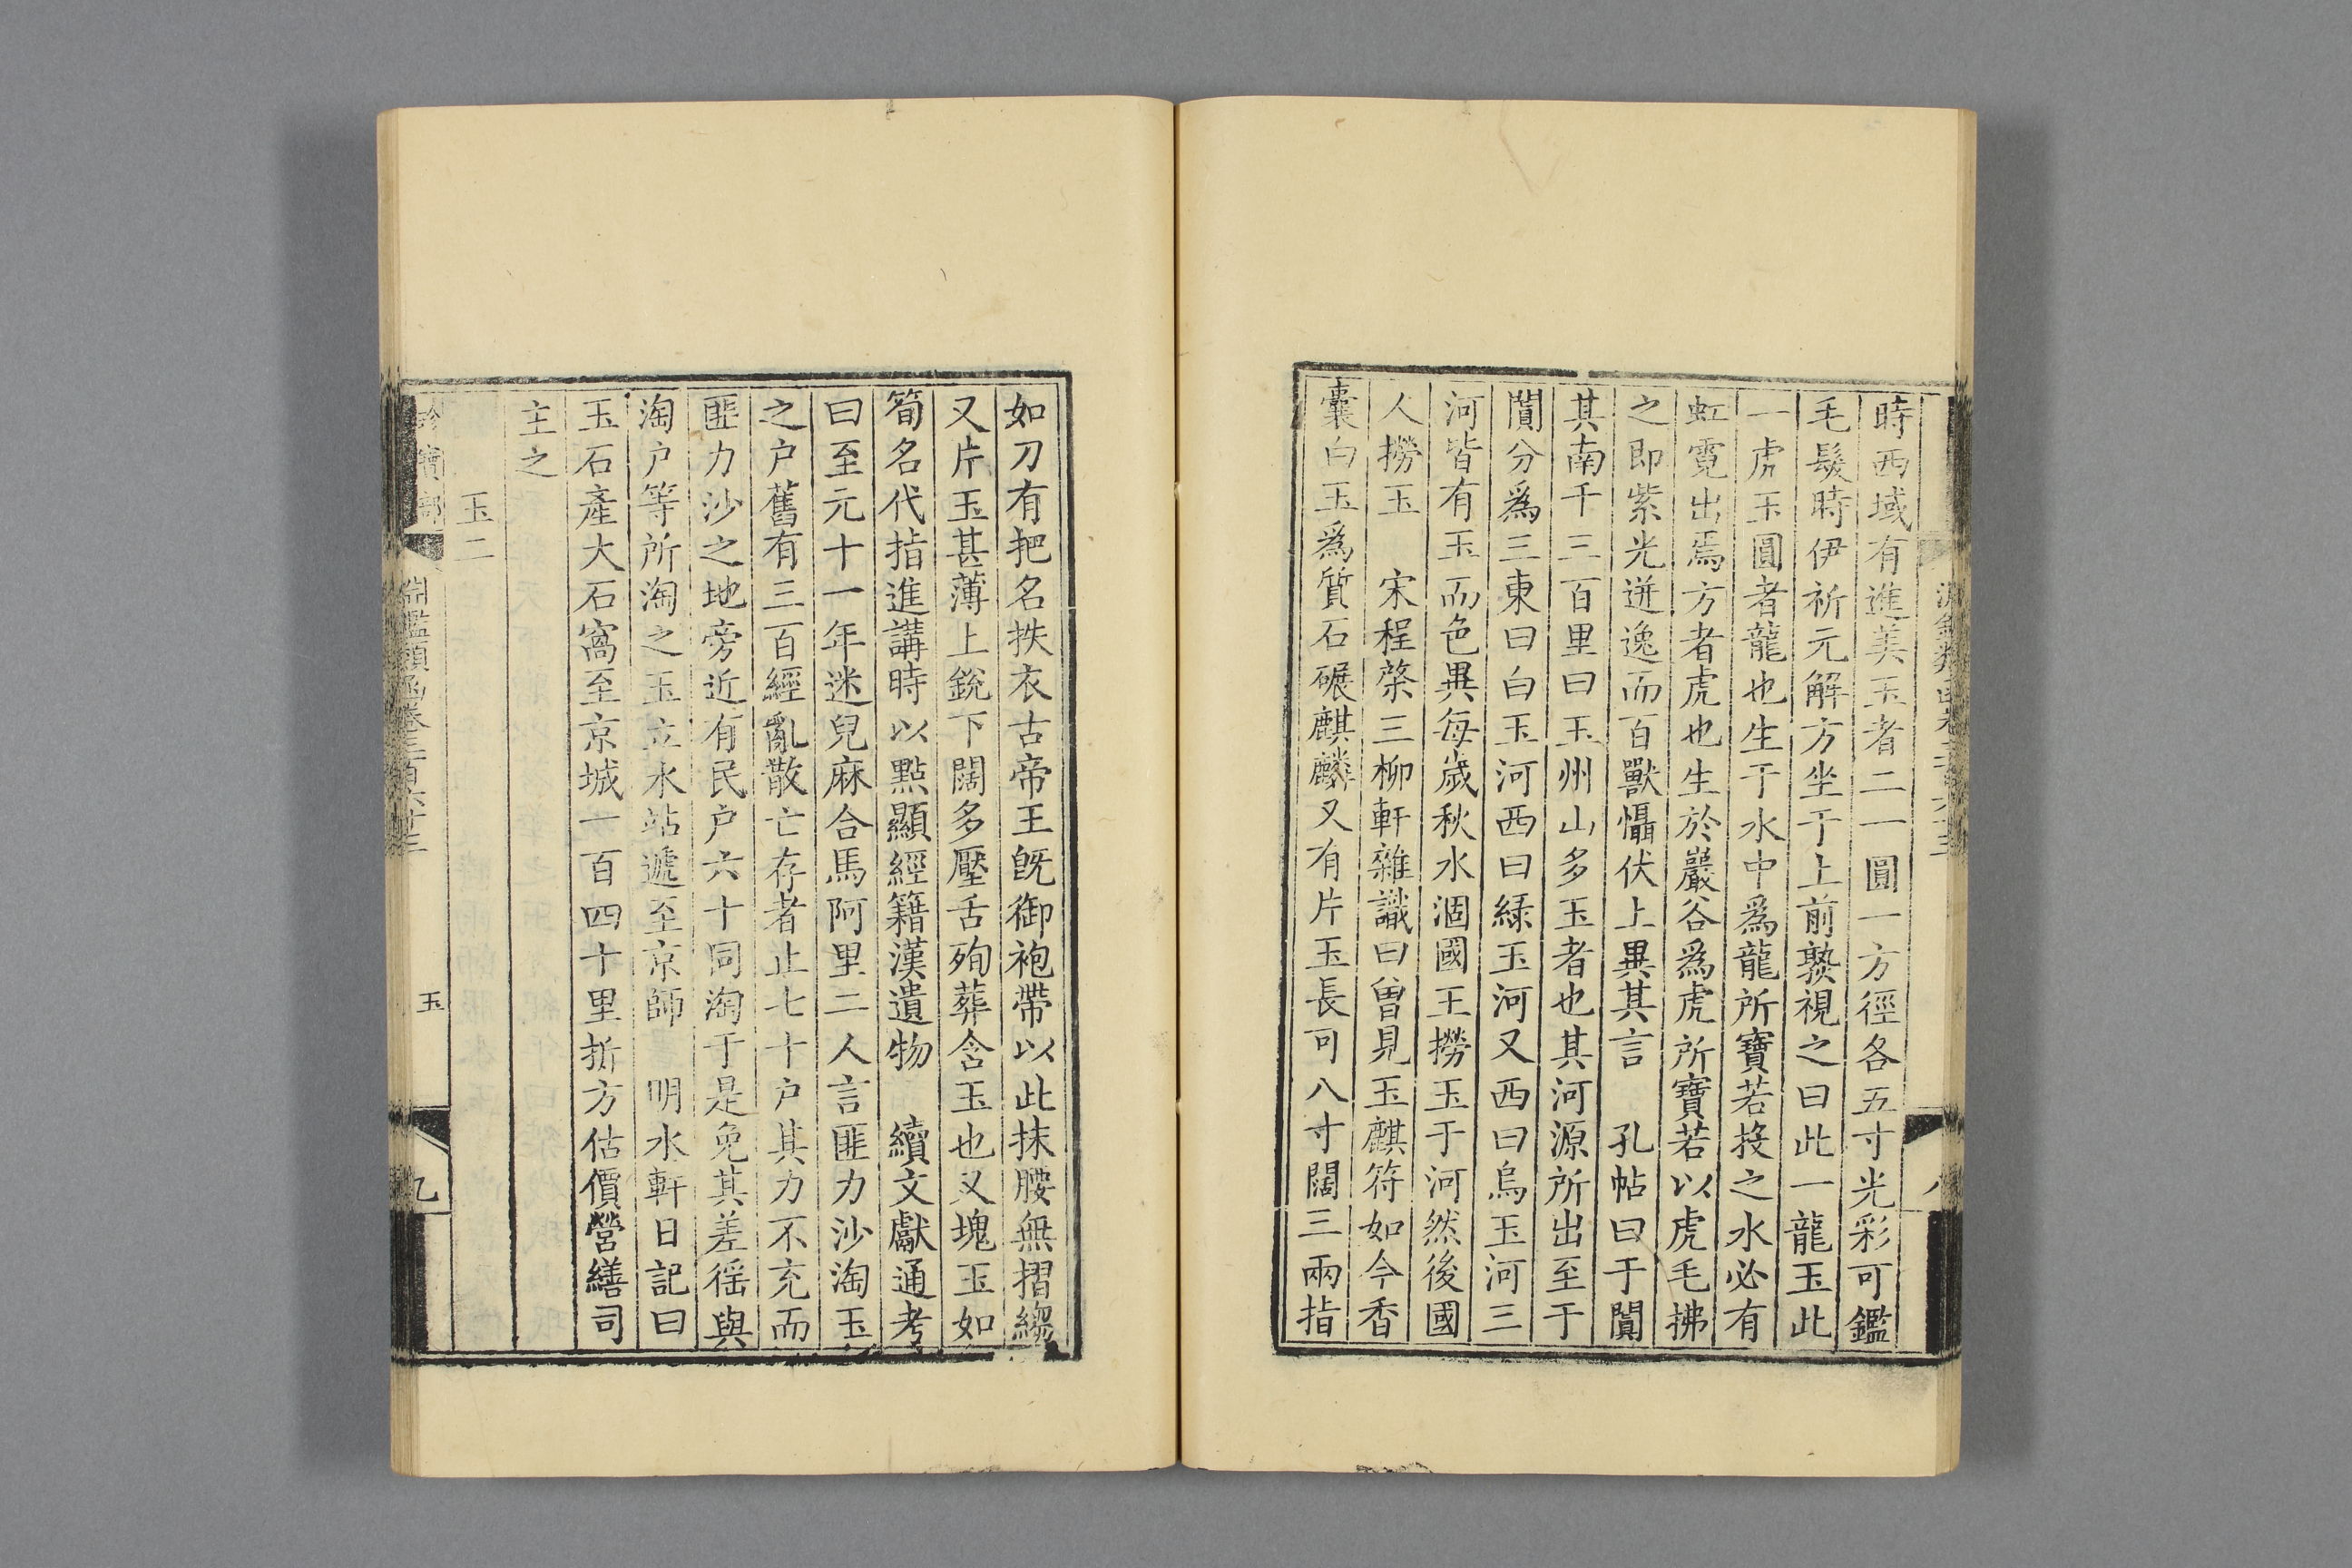 時西域有進美玉者二一圓一方徑各五寸光彩可鑑
毛髮時伊祈元解方坐于上前熟視之曰此一龍玉此
一虎玉圓者龍也生于水中爲龍所寶若投之水必有
虹霓出焉方者虎也生於巖谷爲虎所寶若以虎毛拂
之即紫光迸逸而百獸懾伏上異其言　孔帖曰于闐
其南千三百里曰玉州山多玉者也其河源所出至于
闐分爲三東曰白玉河西曰綠玉河又西曰烏玉河三
河皆有玉而色異每歲秋水涸國王撈玉于河然後國
人撈玉　宋程棨三柳軒雜識曰曽見玉麒符如今香
囊白玉爲質石碾麒麟又有片玉長可八寸闊三兩指
如刀有把名抶衣古帝王旣御袍帶以此抹腰無摺縐
又片玉甚薄上銳下闊多壓舌殉葬含玉也又塊玉如
筍名代指進講時以點顯經籍漢遺物　續文獻通考
曰至元十一年迷兒麻合馬阿里二人言匪力沙淘玉
之户舊有三百經亂散亡存者止七十户其力不充而
匪力沙之地旁近有民户六十同淘于是免其差徭與
淘户等所淘之玉立水站遞至京師　明水軒日記曰
玉石產大石窩至京城一百四十里折方估價營繕司
主之
玉二
珍寶部
淵鑑類函卷三百六十三
玉
九